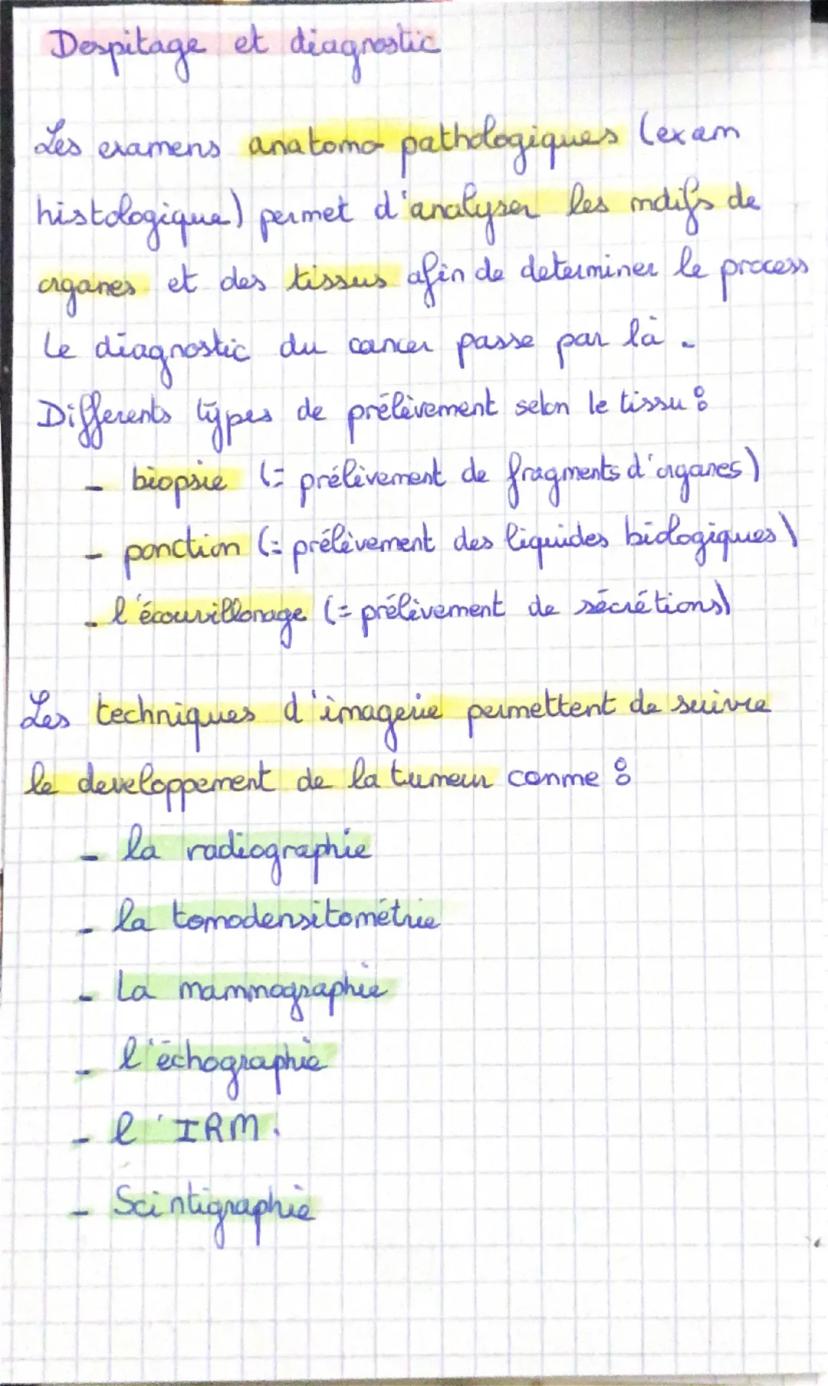 Despitage et diagnostic
Les examens anatomo pathologiques (exam
histologique) permet d'analyser les motifs de
organes et des tissus afin de determiner le process
Le diagnostic du cancer passe par là.
Differents types de prélèvement selon le tissu :
- biopsie (= prélèvement de fragments d'organes)
- ponction (= prélèvement des liquides biologiques)
- l'écouvillonage (= prélèvement de sécrétions)
Les techniques d'imagerie permettent de suivre
le developpement de la tumeur comme :
- la radiographie
- la tomodensitométrie
- La mammographie
- l'échographie
- l'IRM.
- Scintigraphie